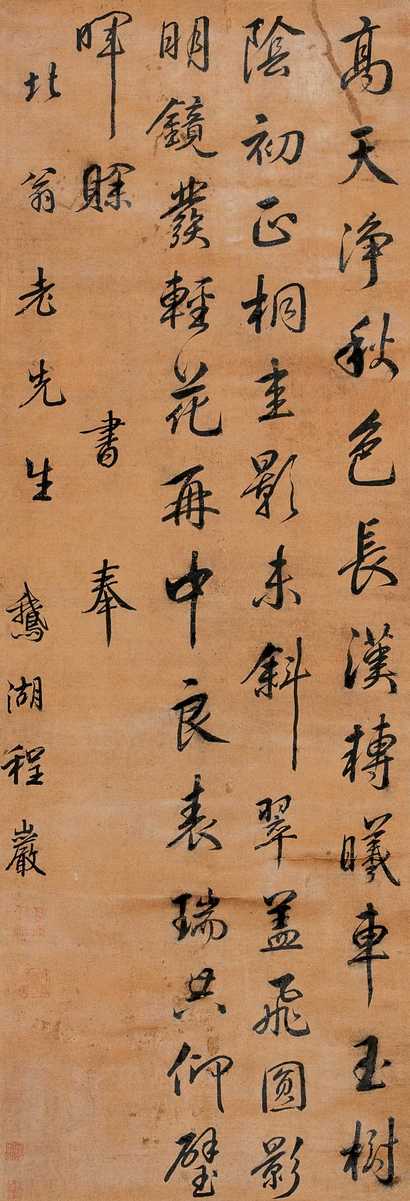 高天淨秋色長漢轉曦車玉樹
陰初正桐圭影未斜翠盖飛圓影
明鏡發輕花再中良表瑞共仰璧
暉賒 書奉
北翁老先生 鵝湖程巖